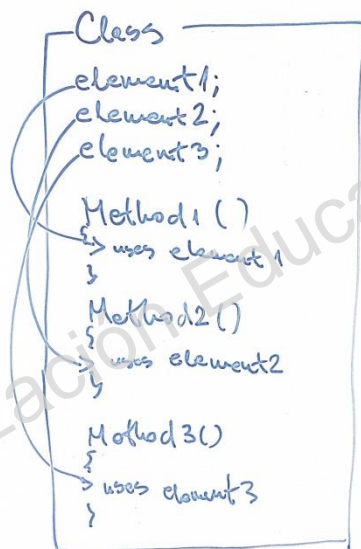 Class
element1;
element2;
element3;
Method1()
{
uses element1
}
Method2()
{
uses element2
}
Method3()
{
uses element3
}
ación Educa